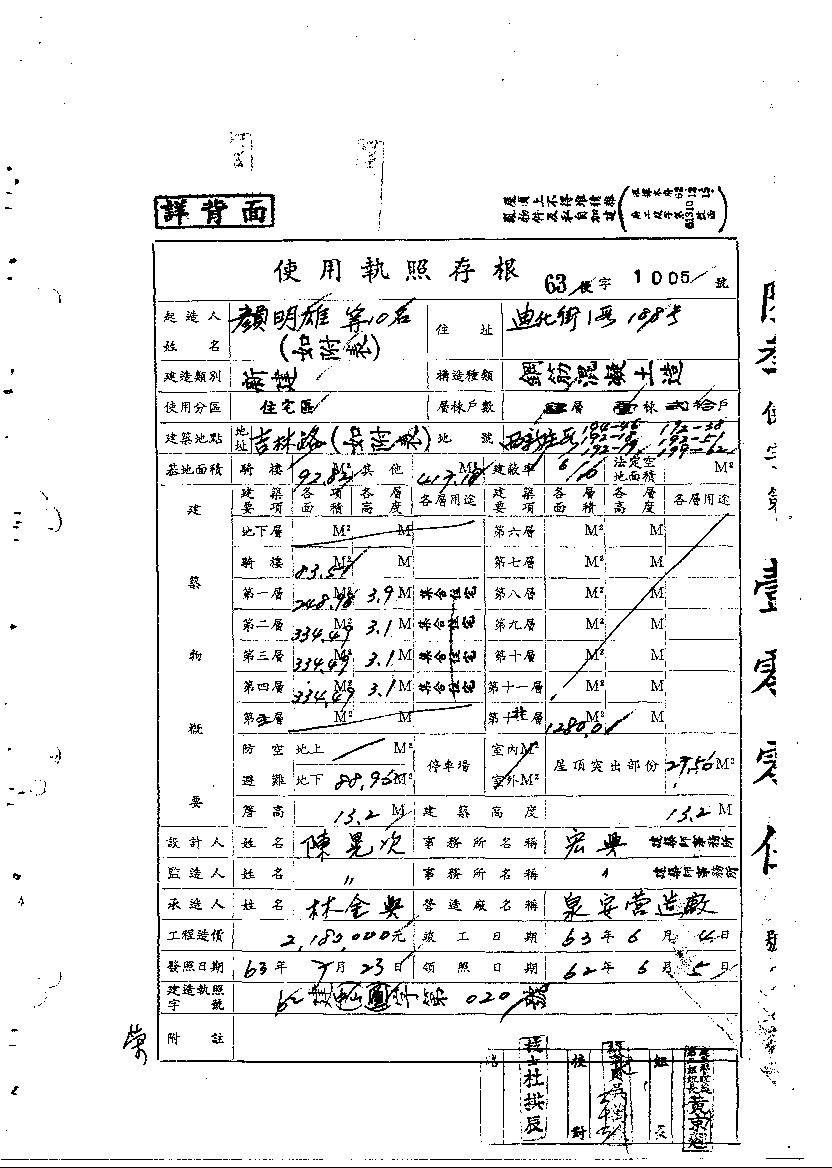 詳背面
屋頂上不得堆積雜
物件及私自加建
使用執照存根 63使字1005號
起造人姓名 顏明雄等10名(如附表) 住址 迪化街1段198号
建造類別 新建 構造種類 鋼筋混凝土造
使用分區 住宅區 層棟戶數 層 壹棟 貳拾戶
建築地點 地址 吉林路(如附表) 地號
基地面積 騎樓 92.82 M² 其他 M² 建蔽率 6/10 法定空地面積 M²
建築物概要 建築要項 各項面積 各層高度 各層用途 建築要項 各層面積 各層高度 各層用途
地下層 M² M 第六層 M² M
騎樓 83.57 M² M 第七層 M² M
第一層 248.98 M² 3.9 M 集合住宅 第八層 M² M
第二層 334.49 M² 3.1 M 集合住宅 第九層 M² M
第三層 334.49 M² 3.1 M 集合住宅 第十層 M² M
第四層 334.49 M² 3.1 M 集合住宅 第十一層 M² M
第五層 M² M 第十 層 1280.01 M² M
防空避難 地上 M² 停車場 室內M² 屋頂突出部份 29.56 M²
地下 88.96 M² 室外M²
簷高 13.2 M 建築高度 13.2 M
設計人 姓名 陳晃次 事務所名稱 宏興 建築師事務所
監造人 姓名 〃 事務所名稱 〃 建築師事務所
承造人 姓名 林金興 營造廠名稱 泉安營造廠
工程造價 2,183,000元 竣工日期 63年6月4日
發照日期 63年7月23日 領照日期 62年6月5日
建造執照字號 字第020 號
附註
榮
技士杜拱辰
校對
組長
黃京
壹零零伍